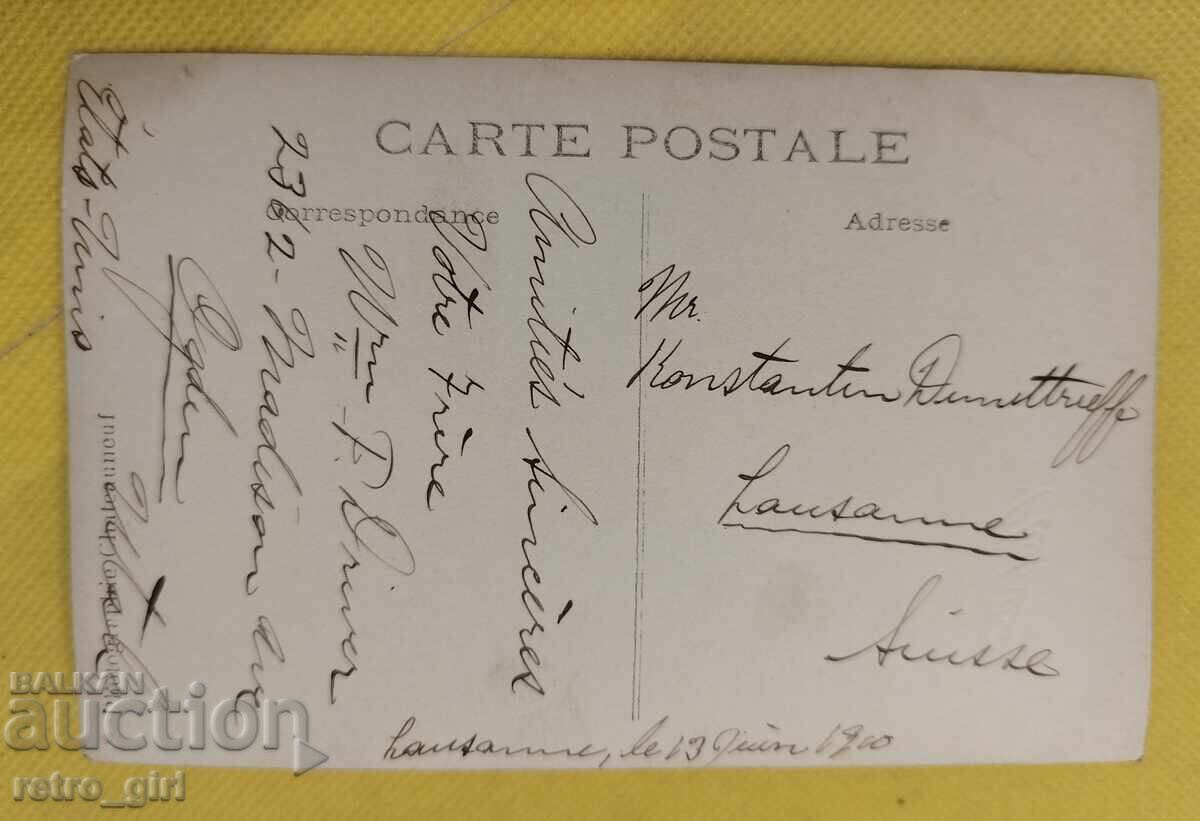 CARTE POSTALE
Correspondance
Adresse
Amitiés sincères
Votre Frère
Wm F. Driver
2362 - Madison Ave
Ogden Utah
États-Unis
Mr.
Konstantin Dimettrieff
Lausanne
Suisse
Lausanne, le 13 Juin 1910
BALKAN
auction
retro_girl